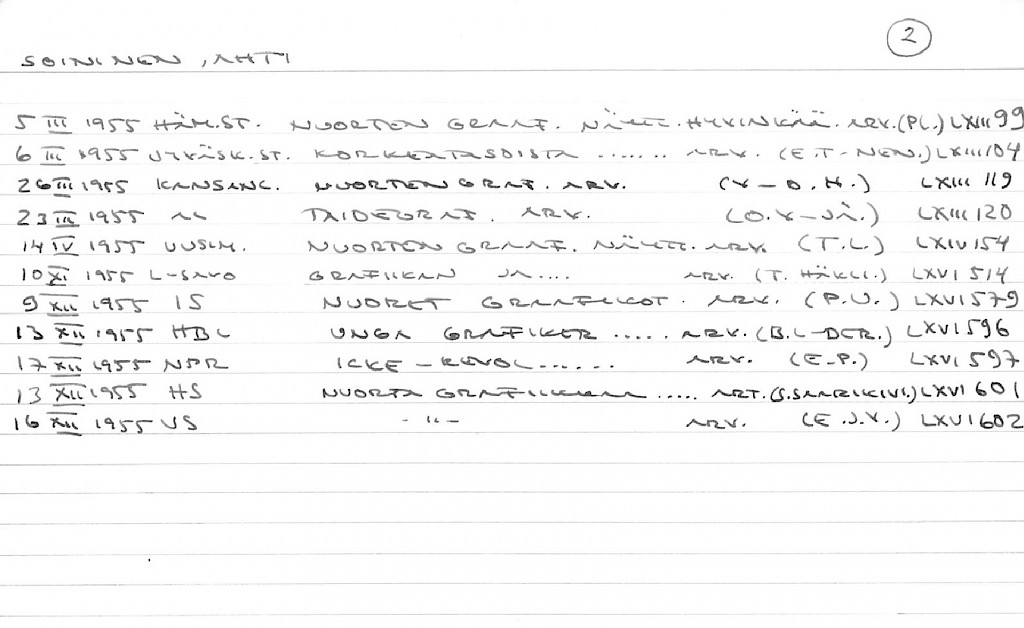 2
SOININEN, AHTI
5 III 1955 HÄM.ST. NUORTEN GRAAF. NÄYTT. HYVINKÄÄ. ARV. (PL.) LXIII 99
6 III 1955 JYVÄSK.ST. KORKEATASOISTA ...... ARV. (E.T-NEN.) LXIII 104
26 III 1955 KANSANK. NUORTEN GRAF. ARV. (Y-O.H.) LXIII 119
23 III 1955 AL TAIDEGRAF. ARV. (O.V-JÄ.) LXIII 120
14 IV 1955 UUSIM. NUORTEN GRAAF. NÄYTT. ARV. (T.L.) LXIV 154
10 XI 1955 L-SAVO GRAFIIKAN JA .... ARV. (T. HÄKLI.) LXVI 514
9 XII 1955 IS NUORET GRAAFIKOT. ARV. (P.V.) LXVI 579
13 XII 1955 HBL UNGA GRAFIKER ..... ARV. (B.L-DER.) LXVI 596
17 XII 1955 NPR ICKE-REVOL ...... ARV. (E-P.) LXVI 597
13 XII 1955 HS NUORTA GRAFIIKKAA ..... ART. (S.SAARIKIVI.) LXVI 601
16 XII 1955 US -"- ARV. (E.J.V.) LXVI 602